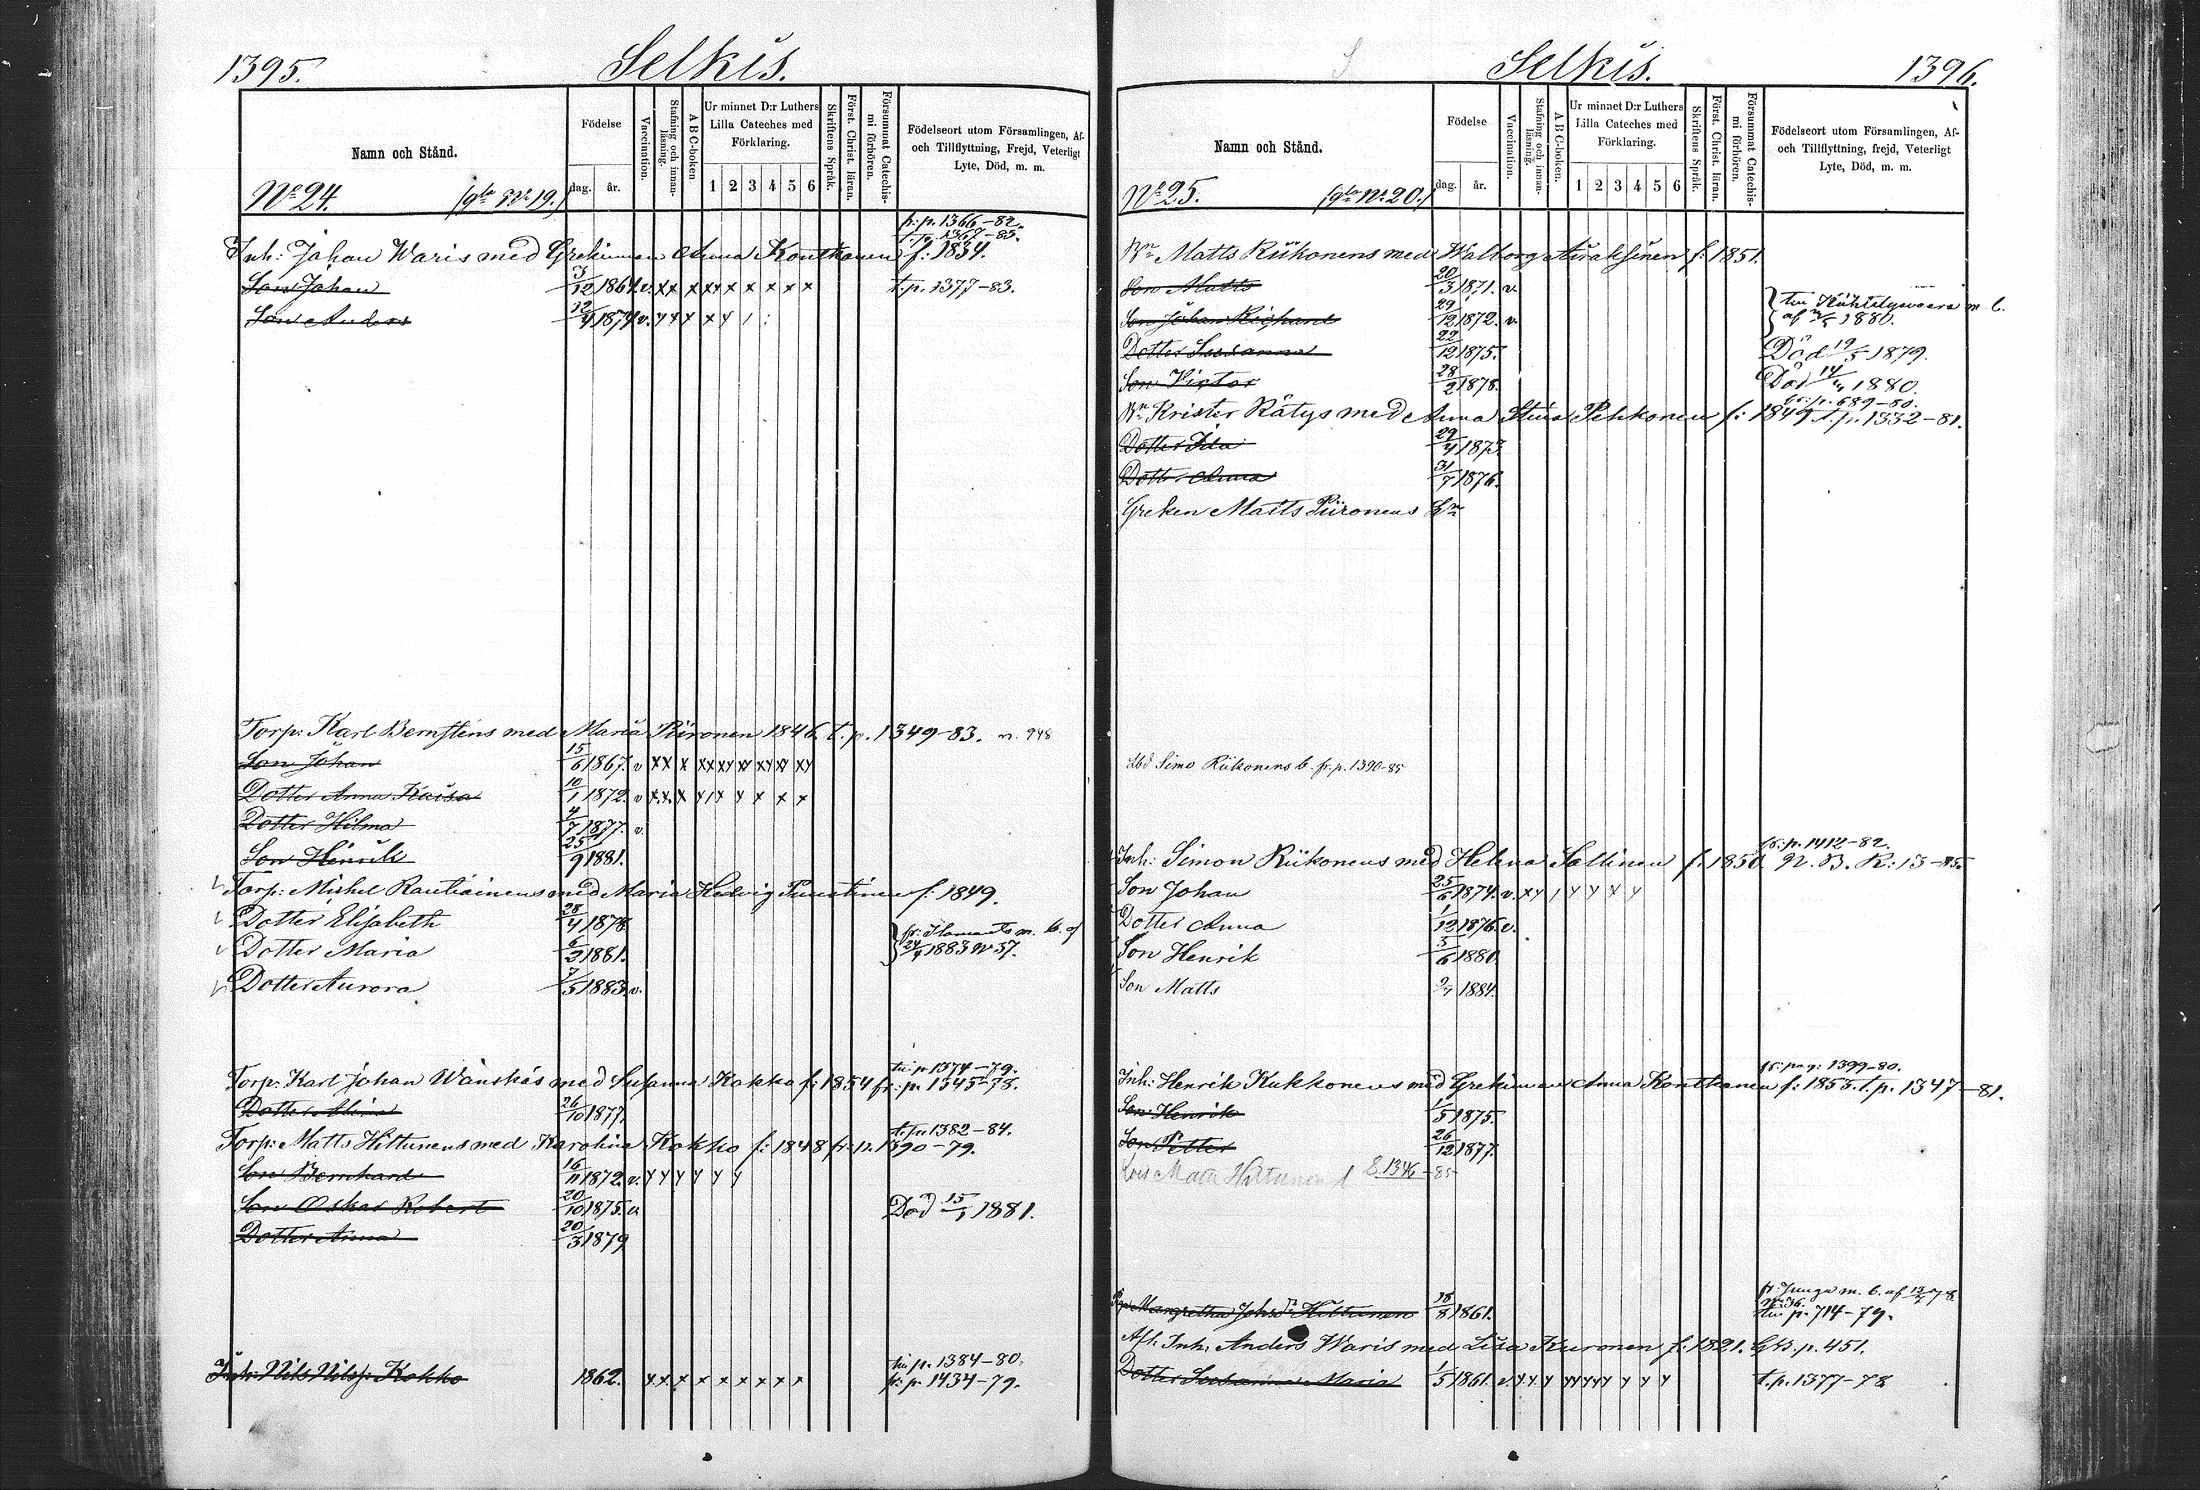 1395.
Selkis.
Namn och Stånd.
Födelse
dag.
år.
Vaccination.
Stafning och innan-läsning.
ABC-boken
Ur minnet D:r Luthers Lilla Cateches med Förklaring.
1 2 3 4 5 6
Skriftens Språk.
Först. Christ. läran.
Försummat Catechis-mi förhören.
Födelseort utom Församlingen, Af-
och Tillflyttning, Frejd, Veterligt
Lyte, Död, m. m.
No 24. (gla No 19.)
fr. p. 1366-82.
t. p. 1367-83.
Inh: Johan Waris med Grekinnan Anna Kontkanen f. 1834.
Son Johan 3/12 1864. v. x x x x x x x x x x t. p. 1377-83.
Son Anders 12/4 1874 v.
Torp: Karl Bernstens med Maria Piironen 1846. t. p. 1349-83. n. 948
Son Johan 15/6 1867. v
Dotter Anna Kaisa 10/1 1872. v
Dotter Hilma 4/7 1877. v.
Son Henrik 25/9 1881.
Torp: Mickel Rautiainens med Maria Hedvig Puustinen f. 1849.
Dotter Elisabeth 28/4 1878.
Dotter Maria 6/2 1881.
fr. Ilomants m. b. af
24/4 1883 No 37.
Dotter Aurora 7/5 1883. v.
till p. 1374-79.
Torp: Karl Johan Wänskäs med Susanna Kokko f: 1854 fr: p. 1345-78.
Dotter Alina 26/10 1877.
t. p. 1382-84.
Torp: Matts Hiltunens med Karolina Kokko f: 1848 fr. p. 1390-79.
Son Bernhard 16/11 1872. v.
Son Oskar Robert 20/10 1875. v. Död 15/1 1881.
Dotter Anna 20/3 1879
till p. 1384-80.
Inh: Nils Nilsp: Kokko 1862. x x x x x x x x x fr: p. 1434-79.
Selkis.
1396.
Namn och Stånd.
Födelse
dag.
år.
Vaccination.
Stafning och innan-läsning.
ABC-boken.
Ur minnet D:r Luthers Lilla Cateches med Förklaring.
1 2 3 4 5 6
Skriftens Språk.
Först. Christ. läran.
Försummat Catechis-mi förhören.
Födelseort utom Församlingen, Af-
och Tillflyttning, frejd, Veterligt
Lyte, Död, m. m.
No 25. (gla No 20.)
Bn Matts Riikonens med Walborg Airaksinen f: 1851.
Son Matts 20/3 1871. v.
Son Johan Richard 29/12 1872. v.
till Kiihtelysvaara m. b.
af 1880.
Dotter Susanna 22/12 1875. Död 19/5 1879.
Son Victor 28/2 1878. Död 14/4 1880.
fr. p. 689-80.
Bn Krister Rätys med Anna Stina Pehkonen f: 1849 t. p. 1332-81.
Dotter Ida 29/4 1873.
Dotter Anna 31/7 1876.
Greken Matts Piironens Gn
Lbd Simo Riikonens b. fr. p. 1390-85
fr: p. 1412-82.
Inh: Simon Riikonens med Helena Sallinen f. 1850. N. B. K: 13-85.
Son Johan 25/6 1874. v.
Dotter Anna 1/12 1876. v.
Son Henrik 5/6 1880.
Son Matts 1884.
fr: pag: 1399-80.
Inh: Henrik Kukkonens med Grekinnan Anna Kontkanen f: 1853. t. p. 1347-81.
Son Henrik 1/5 1875.
Son Petter 26/12 1877.
Matts Hiltunen 1346-85
fr: Junga m. b. af 78
No 36.
Pig: Margretha Johsd:r Hiltunen 18/8 1861. till p. 714-79.
Afl. Inh. Anders Waris med Lisa Kuronen f. 1821. Gts. p. 451.
Dotter Susanna Maria 1/5 1861. v. t. p. 1377-78